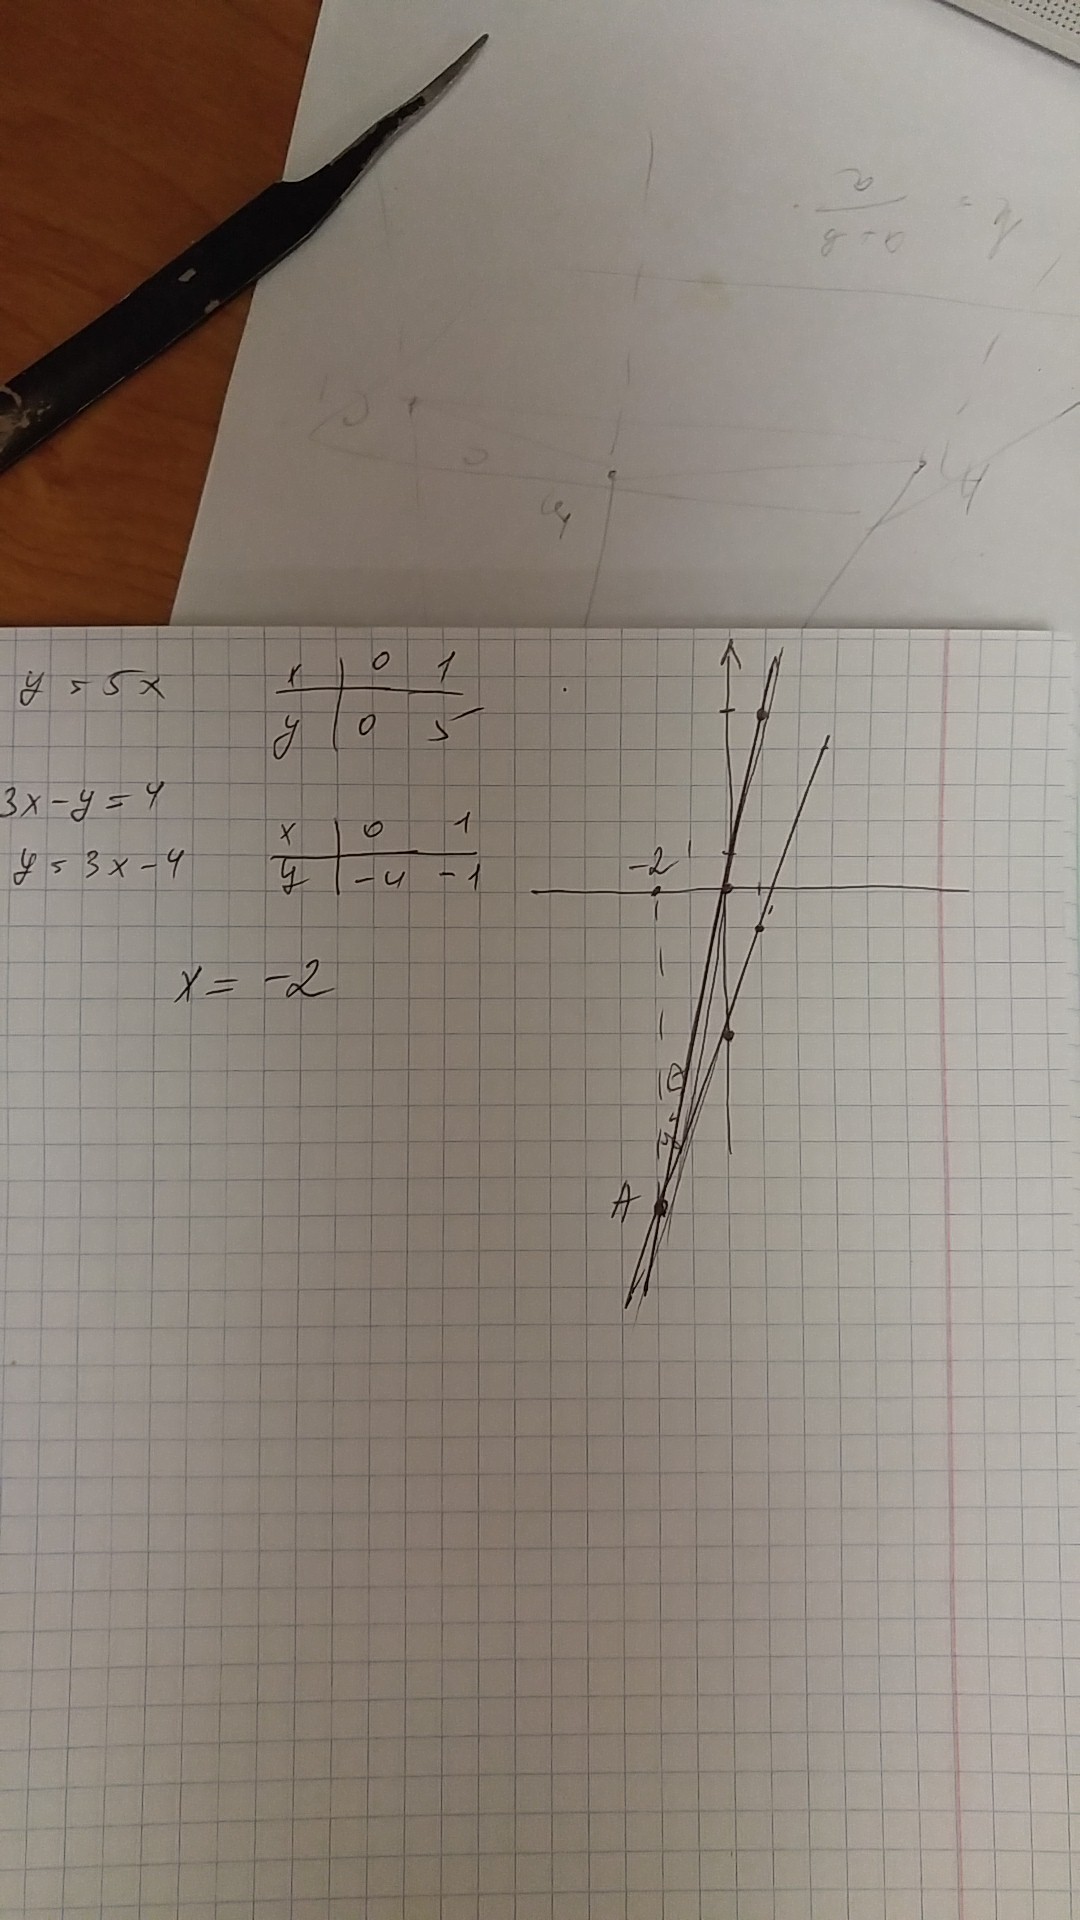 y = 5x
x | 0 1
y | 0 5
3x - y = 4
y = 3x - 4
x | 0 1
y | -4 -1
x = -2
-2
1
1
A